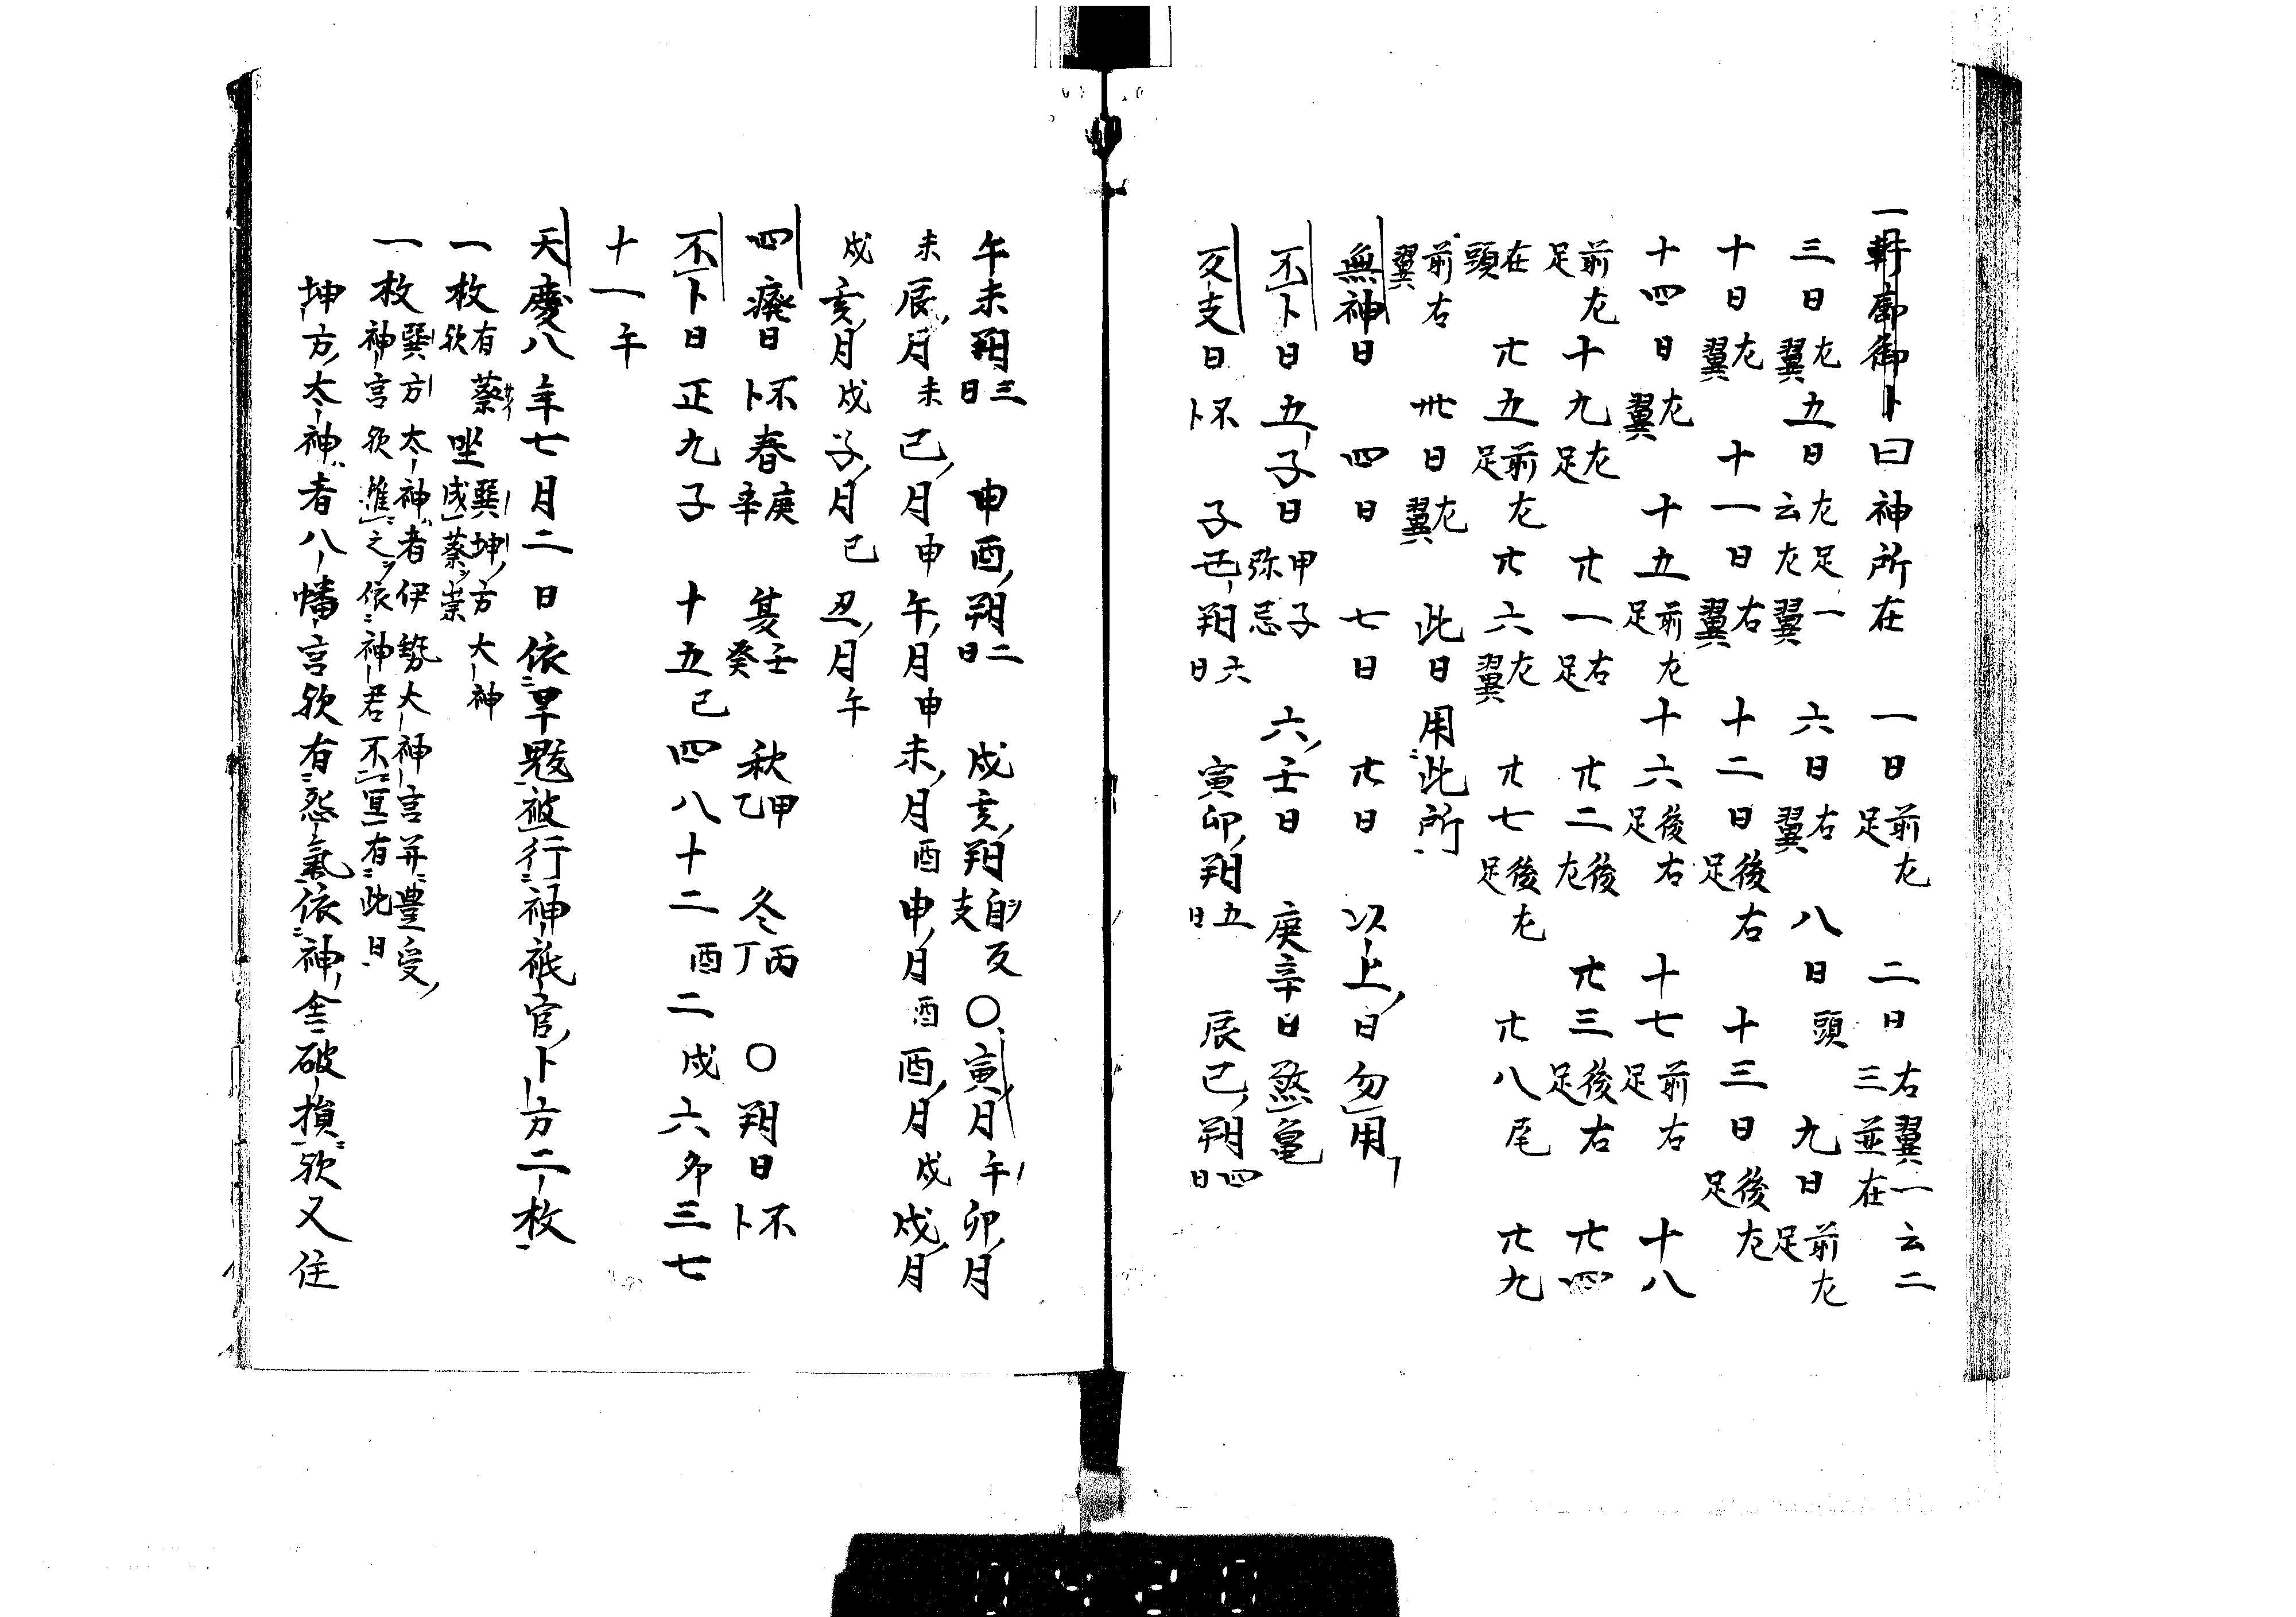 一軒廊御卜曰神所在 一日前左足 二日右翼一云二三並在
三日左翼 五日左足一云左翼 六日右翼 八日頭 九日前左足
十日左翼 十一日右翼 十二日後右足 十三日後左足
十四日左翼 十五前左足 十六後右足 十七前右足 十八
前左足 十九左足 廿一右足 廿二後左 廿三後右足 廿四
在頭 廿五前左足 廿六左翼 廿七後左足 廿八尾 廿九
前右翼 卅日左翼 此日用此所
無神日 四日 七日 廿日 以上日勿用
不卜日五子日甲子弥忌 六壬日 庚辛日煞亀
亥支日不卜 子丑朔六日 寅卯朔五日 辰巳朔四日
午未朔三日 申酉朔二日 戌亥朔自支亥〇寅月午卯月
未辰月未巳月申午月申未月酉申月酉酉月戌戌月
戌亥月戌子月巳丑月午
四廃日不卜春庚辛 夏壬癸 秋甲乙 冬丙丁 〇朔日不卜
不卜日正九子 十五巳四八十二酉二戌六卯三七
十一午
天慶八年七月二日依旱魃被行神祇官卜方二枚
一枚有蔡欤坐巽坤方大神成蔡祟
一枚巽方太神者伊勢大神宮并豊受神宮欤進之依神君不有此日
坤方太神者八幡宮欤有怨氣依神舎破損欤又住